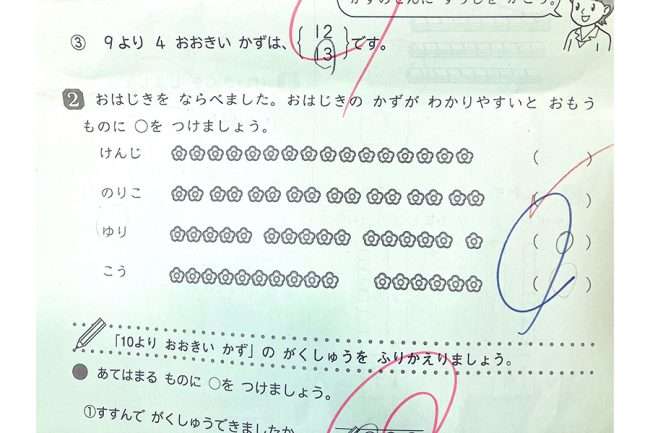 ③ 9より 4 おおきい かずは、{12 13}です。
2 おはじきを ならべました。おはじきの かずが わかりやすいと おもう
ものに ○を つけましょう。
けんじ ( )
のりこ ( )
ゆり (○)
こう ( )
「10より おおきい かず」の がくしゅうを ふりかえりましょう。
● あてはまる ものに ○を つけましょう。
①すすんで がくしゅうできましたか